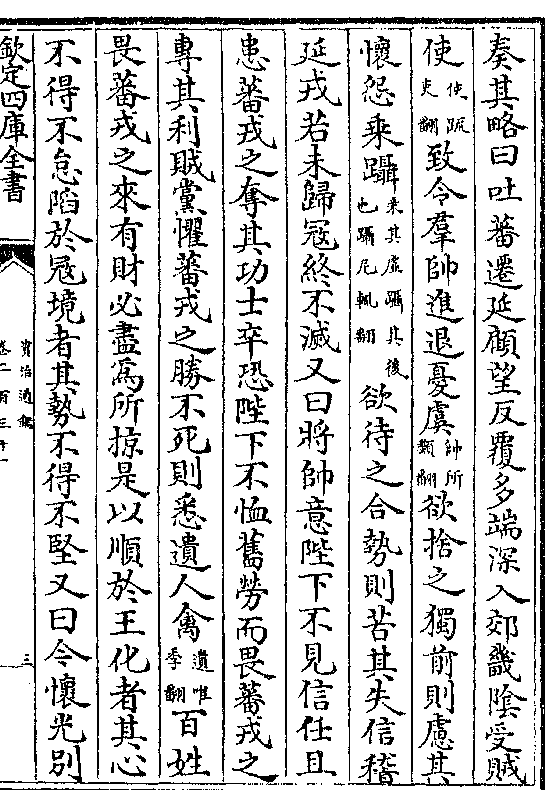 奏其略曰吐蕃遷延顧望反覆多端深入郊畿陰受賊
使使疏吏翻致令羣帥進退憂虞帥所類翻欲捨之獨前則慮其
懷怨乘躡乘其虛躡其後也躡尼輒翻欲待之合勢則苦其失信稽
延戎若未歸冦終不滅又曰將帥意陛下不見信任且
患蕃戎之奪其功士卒恐陛下不恤舊勞而畏蕃戎之
專其利賊黨懼蕃戎之勝不死則悉遺人禽遺唯季翻百姓
畏蕃戎之來有財必盡爲所掠是以順於王化者其心
不得不怠陷於冦境者其勢不得不堅又曰今懷光別
欽定四庫全書
資治通鑑
卷二百三十一
三